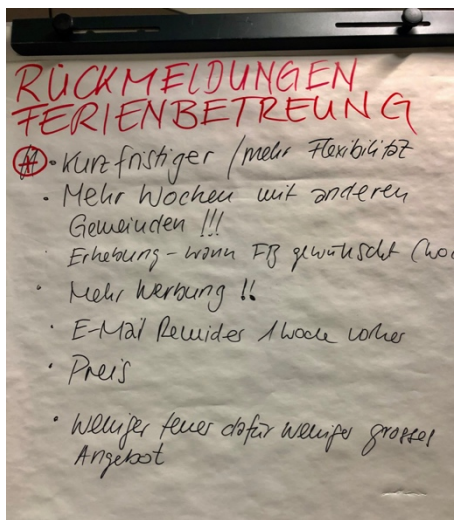 RÜCKMELDUNGEN
FERIENBETREUNG
• Kurzfristiger / mehr Flexibilität
• Mehr Wochen mit anderen
Gemeinden !!!
• Erhebung - wann FB gewünscht
• Mehr Werbung !!
• E-Mail Remider 1 Woche vorher
• Preis
• Weniger teuer dafür weniger grosses
Angebot